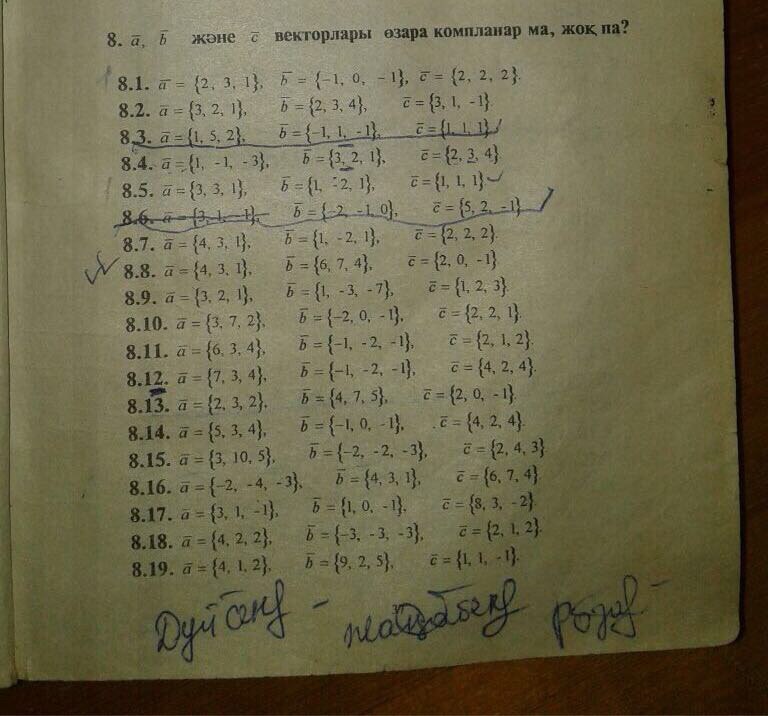 8. a̅, b̅ және c̅ векторлары өзара компланар ма, жоқ па?
8.1. a̅ = {2, 3, 1}, b̅ = {-1, 0, -1}, c̅ = {2, 2, 2}.
8.2. a̅ = {3, 2, 1}, b̅ = {2, 3, 4}, c̅ = {3, 1, -1}.
8.3. a̅ = {1, 5, 2}, b̅ = {-1, 1, -1}, c̅ = {1, 1, 1}
8.4. a̅ = {1, -1, -3}, b̅ = {3, 2, 1}, c̅ = {2, 3, 4}
8.5. a̅ = {3, 3, 1}, b̅ = {1, -2, 1}, c̅ = {1, 1, 1}
8.6. a̅ = {3, 1, -1}, b̅ = {-2, -1, 0}, c̅ = {5, 2, -1}
8.7. a̅ = {4, 3, 1}, b̅ = {1, -2, 1}, c̅ = {2, 2, 2}.
8.8. a̅ = {4, 3, 1}, b̅ = {6, 7, 4}, c̅ = {2, 0, -1}
8.9. a̅ = {3, 2, 1}, b̅ = {1, -3, -7}, c̅ = {1, 2, 3}.
8.10. a̅ = {3, 7, 2}, b̅ = {-2, 0, -1}, c̅ = {2, 2, 1}.
8.11. a̅ = {6, 3, 4}, b̅ = {-1, -2, -1}, c̅ = {2, 1, 2}.
8.12. a̅ = {7, 3, 4}, b̅ = {-1, -2, -1}, c̅ = {4, 2, 4}.
8.13. a̅ = {2, 3, 2}, b̅ = {4, 7, 5}, c̅ = {2, 0, -1}.
8.14. a̅ = {5, 3, 4}, b̅ = {-1, 0, -1}, c̅ = {4, 2, 4}.
8.15. a̅ = {3, 10, 5}, b̅ = {-2, -2, -3}, c̅ = {2, 4, 3}
8.16. a̅ = {-2, -4, -3}, b̅ = {4, 3, 1}, c̅ = {6, 7, 4}
8.17. a̅ = {3, 1, -1}, b̅ = {1, 0, -1}, c̅ = {8, 3, -2}.
8.18. a̅ = {4, 2, 2}, b̅ = {-3, -3, -3}, c̅ = {2, 1, 2}.
8.19. a̅ = {4, 1, 2}, b̅ = {9, 2, 5}, c̅ = {1, 1, -1}.